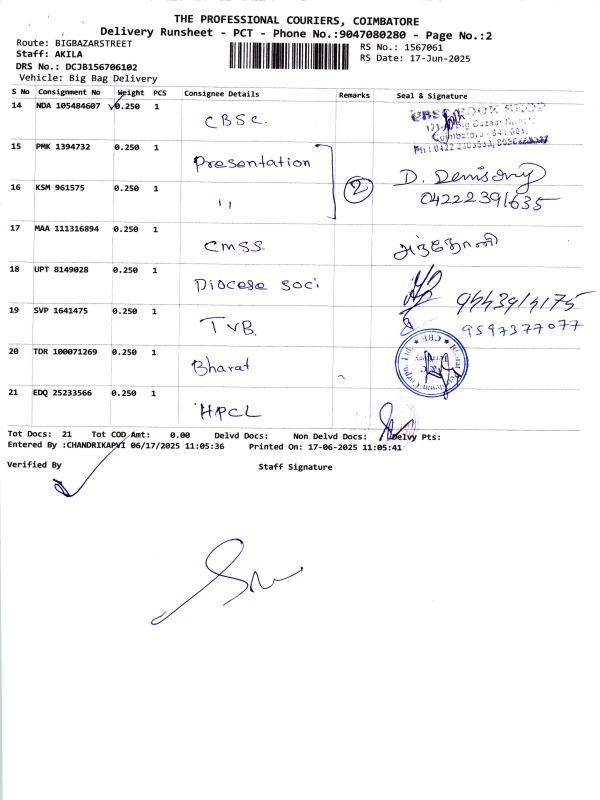 THE PROFESSIONAL COURIERS, COIMBATORE
Delivery Runsheet - PCT - Phone No.:9047080280 - Page No.:2
Route: BIGBAZARSTREET
Staff: AKILA
DRS No.: DCJB156706102
Vehicle: Big Bag Delivery
RS No.: 1567061
RS Date: 17-Jun-2025
S No Consignment No Weight PCS Consignee Details Remarks Seal & Signature
14 NDA 105484607 0.250 1 CBSC.
CBSC BOOK SHOP
15 PMK 1394732 0.250 1 Presentation
16 KSM 961575 0.250 1 "
2
D. Denisony
04222391635
17 MAA 111316894 0.250 1 CMSS அந்தோனி
18 UPT 8149028 0.250 1 Diocese Soci
19 SVP 1641475 0.250 1 TVB. 9597377077
20 TDR 100071269 0.250 1 Bharat
21 EDQ 25233566 0.250 1 HPCL
Tot Docs: 21 Tot COD Amt: 0.00 Delvd Docs: Non Delvd Docs: Delvy Pts:
Entered By :CHANDRIKAPVI 06/17/2025 11:05:36 Printed On: 17-06-2025 11:05:41
Verified By Staff Signature